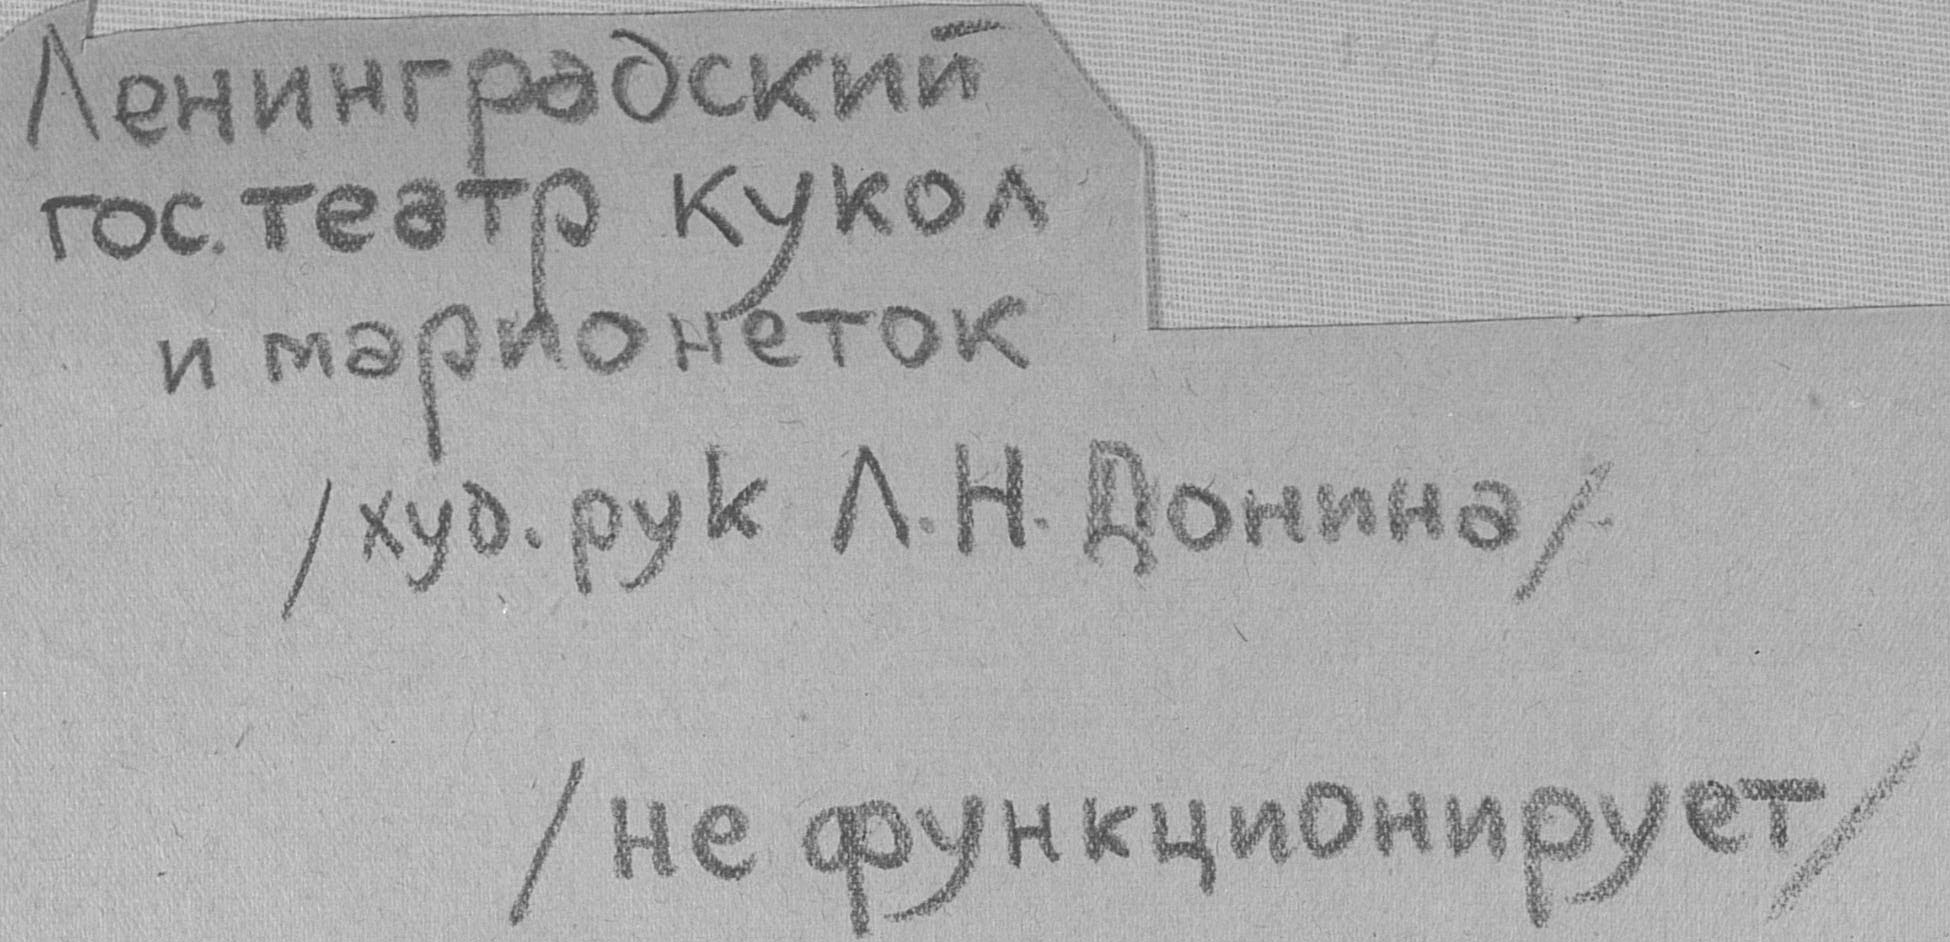 Ленинградский
гос. театр кукол
и марионеток
/худ. рук Л.Н. Донина/
/не функционирует/